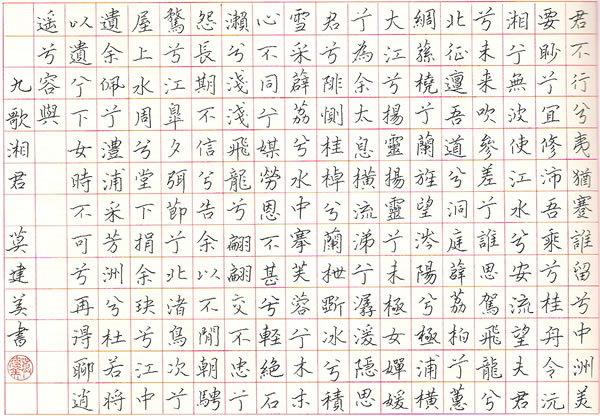 君不行兮夷猶蹇誰留兮中洲美
要眇兮宜修沛吾乘兮桂舟令沅
湘兮無波使江水兮安流望夫君
兮未來吹參差兮誰思駕飛龍兮
北征邅吾道兮洞庭薜荔柏兮蕙
綢蓀橈兮蘭旌望涔陽兮極浦橫
大江兮揚靈揚靈兮未極女嬋媛
兮為余太息橫流涕兮潺湲隱思
君兮陫惻桂棹兮蘭枻斲冰兮積
雪采薜荔兮水中搴芙蓉兮木末
心不同兮媒勞恩不甚兮輕絕石
瀨兮淺淺飛龍兮翩翩交不忠兮
怨長期不信兮告余以不閒朝騁
驚兮江皐夕弭節兮北渚鳥次兮
屋上水周兮堂下捐余玦兮江中
遺余佩兮澧浦采芳洲兮杜若將
以遺兮下女時不可兮再得聊逍
遙兮容與
九歌湘君 莫建美書